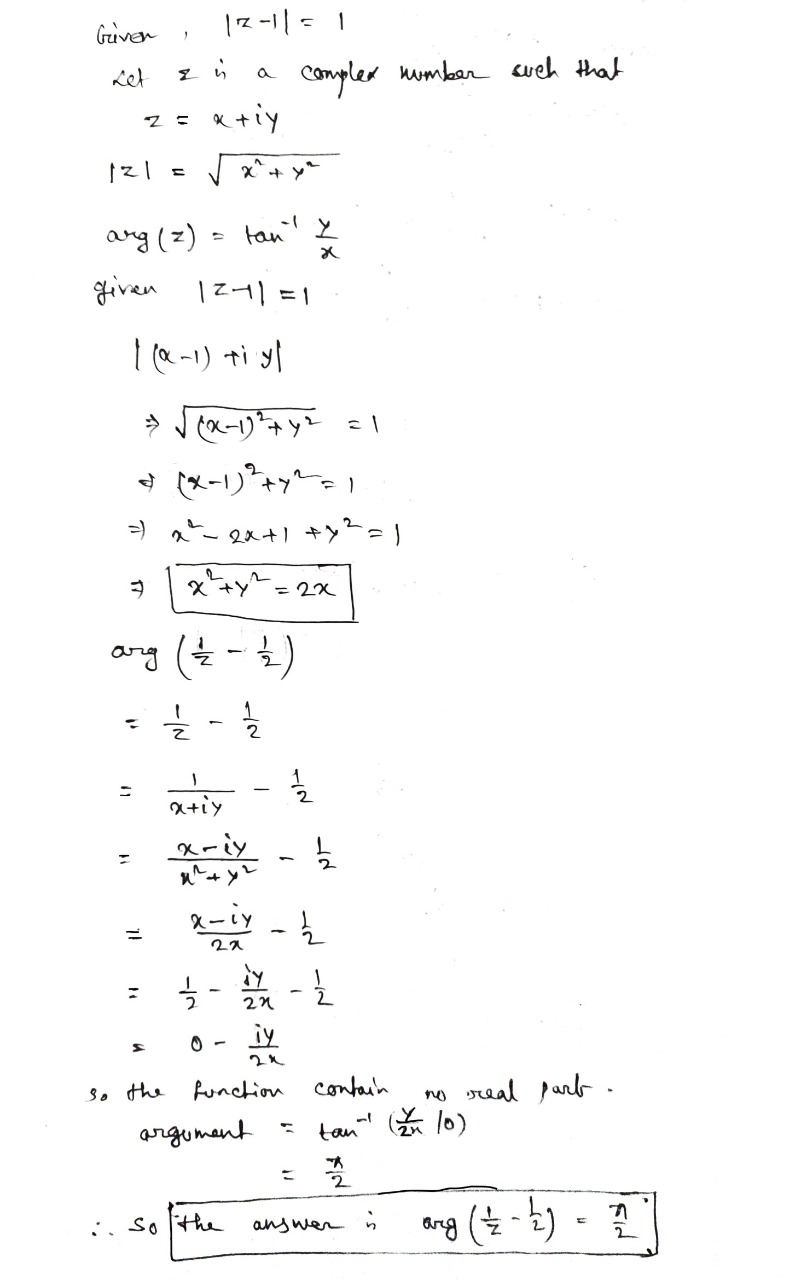 Given, |z-1| = 1
Let z is a complex number such that
z = x+iy
|z| = √(x²+y²)
arg(z) = tan⁻¹ y/x
given |z-1| = 1
|(x-1)+iy|
⇒ √((x-1)²+y²) = 1
⇒ (x-1)²+y² = 1
⇒ x²-2x+1+y² = 1
⇒ x²+y² = 2x
arg (1/z - 1/2)
= 1/z - 1/2
= 1/(x+iy) - 1/2
= (x-iy)/(x²+y²) - 1/2
= (x-iy)/2x - 1/2
= 1/2 - iy/2x - 1/2
= 0 - iy/2x
so the function contain no real part.
argument = tan⁻¹ (y/2x /0)
= π/2
∴ So the answer is arg (1/z - 1/2) = π/2